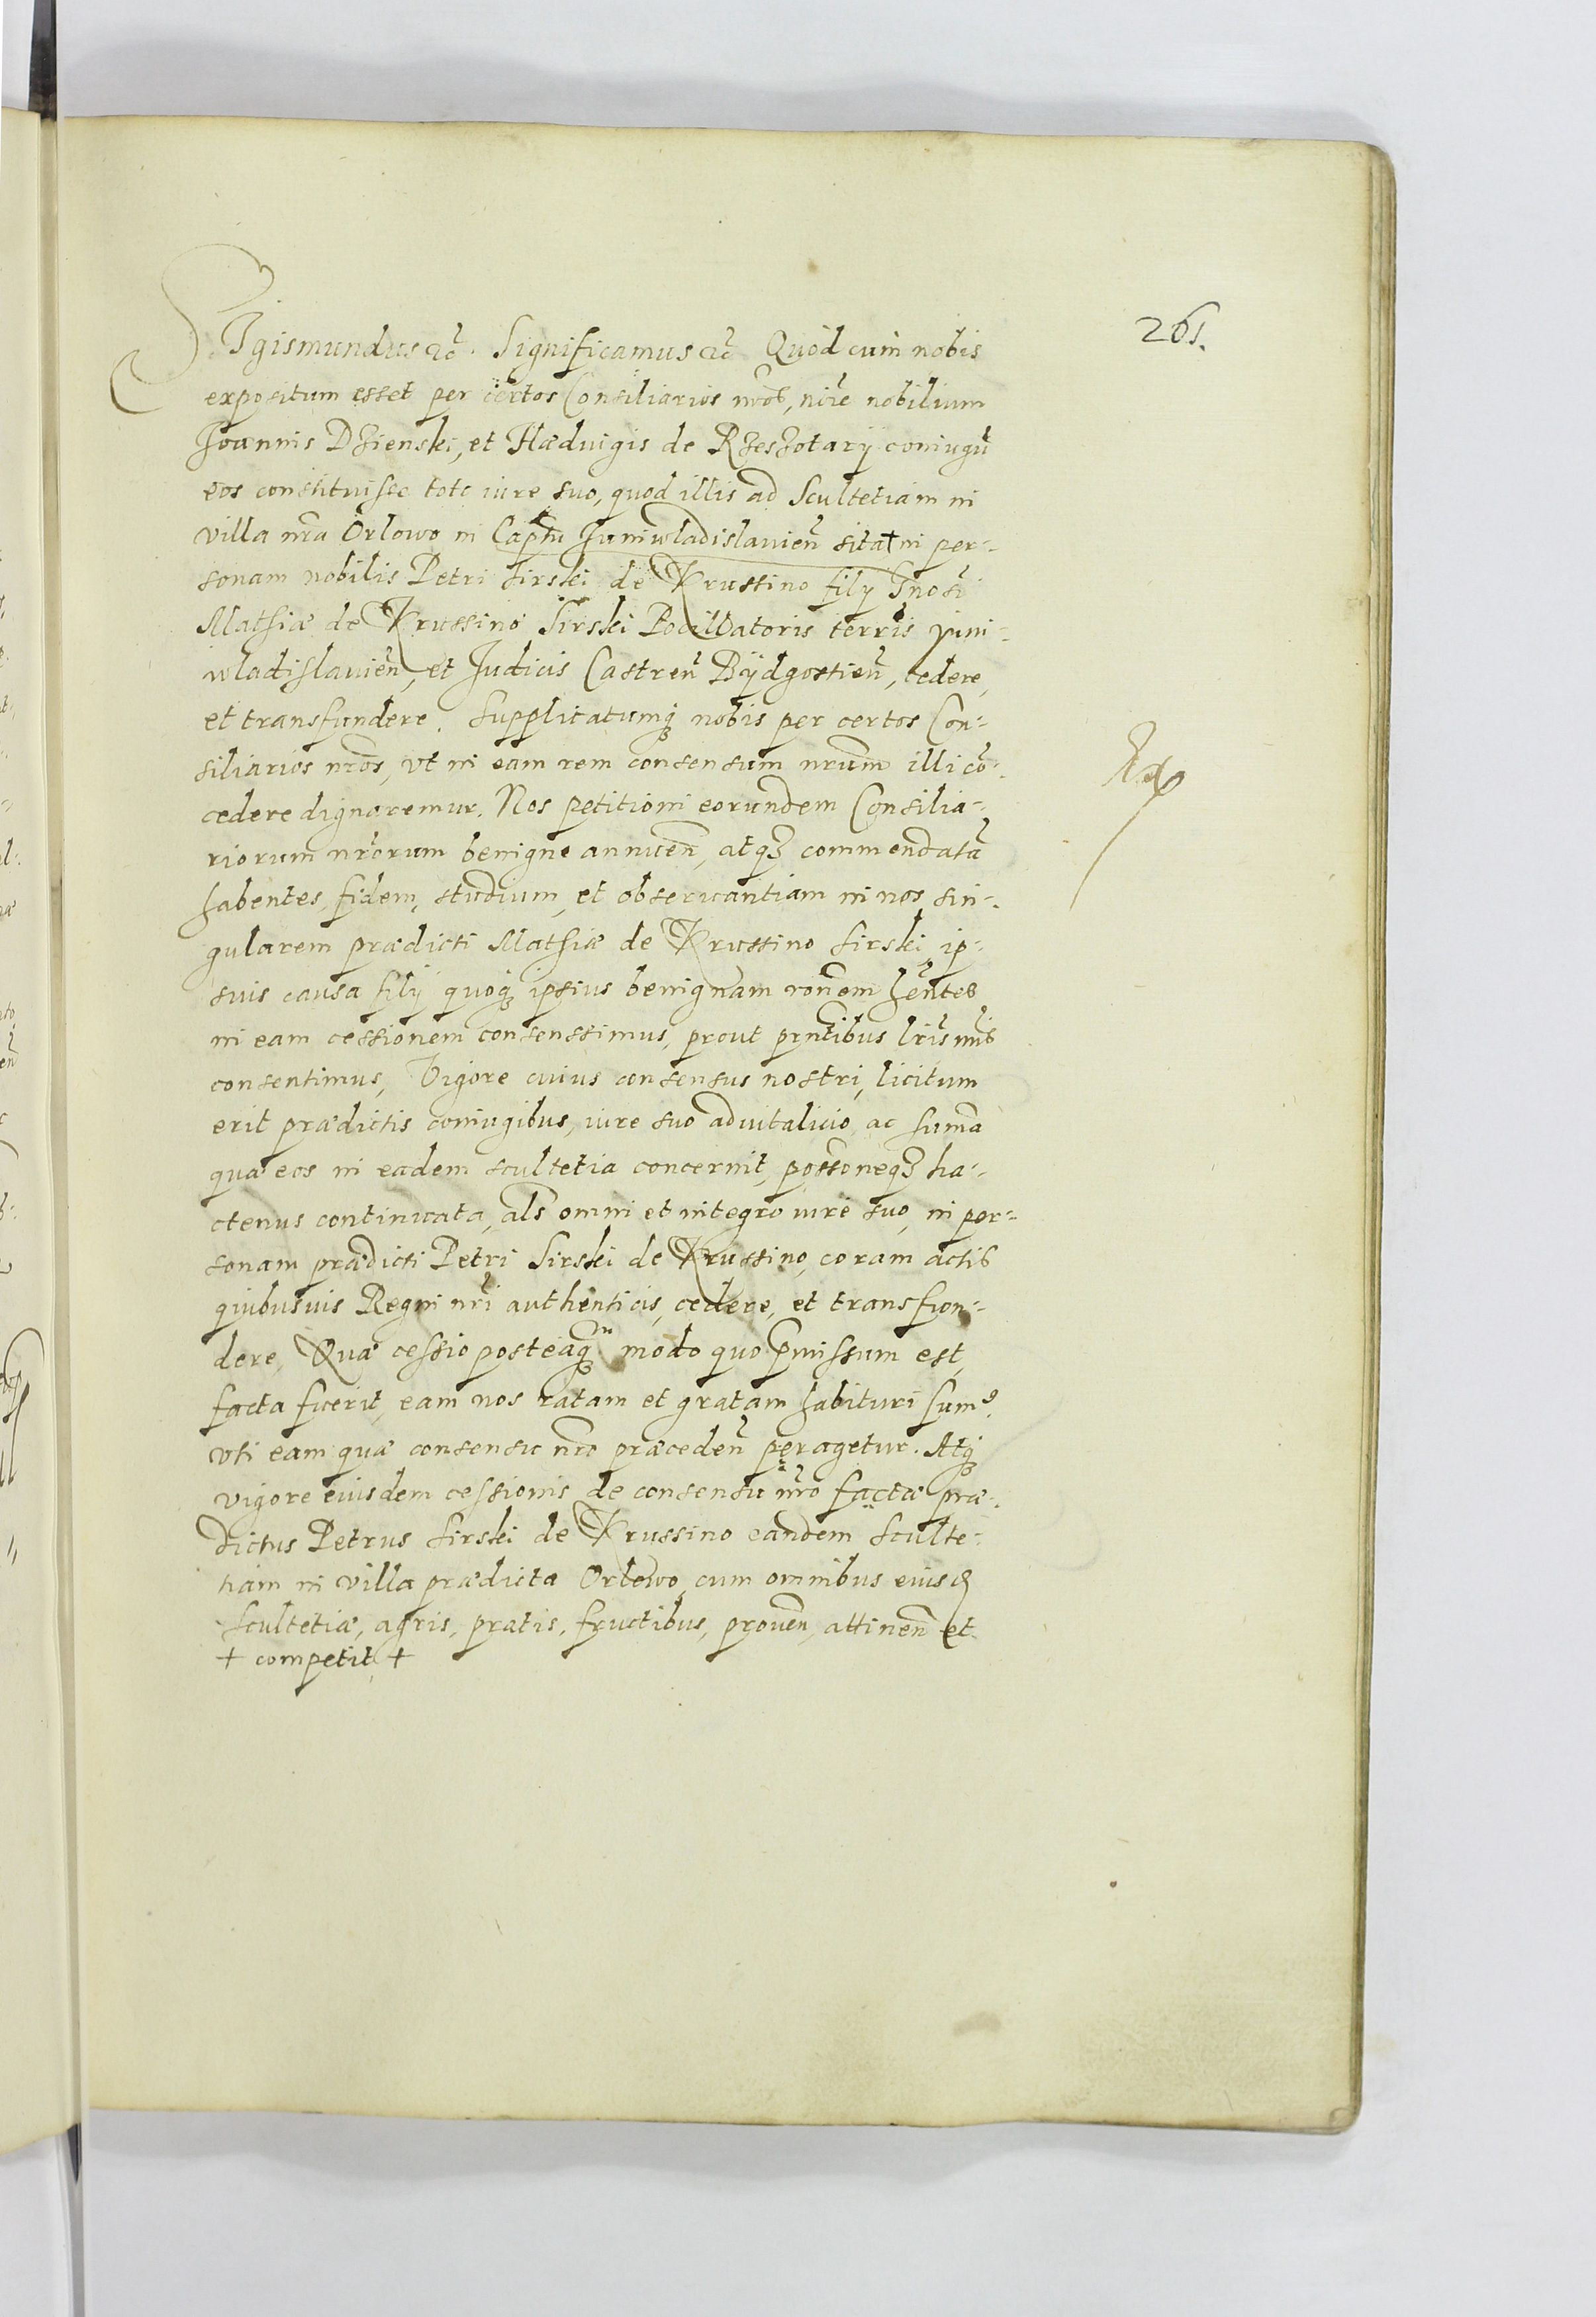 261.
Sigismundus etc. Significamus etc. Quod cum nobis
expositum esset per certos Consiliarios nros, noie nobilium
Joannis Dzienski, et Hæduigis de Rzeszotarij coniugũ
eos constituisse toto iure suo, quod illis ad Scultetiam in
villa nra Orlowo in Captu Juniwladislauien̄ sita † in per-
sonam nobilis Petri Sirski de Krussino filij Gnosi
Mathiæ de Krussino Sirski Pocillatoris terris Juni-
wladislauien̄, et Judicis Castren̄ Bÿdgostien̄, cedere,
et transfundere. Supplicatumq; nobis per certos Con-
siliarios nros, vt in eam rem consensum nrum illi cõ-
cedere dignaremur. Nos petitioni eorundem Consilia-
riorum nrorum benigne annuen̄, atq; commendatã
habentes, fidem, studium, et obseruantiam in nos sin-
gularem prædicti Mathiæ de Krussino Sirski, ip-
suis causa filij quoq; ipsius benignam ronem hentes
in eam cessionem consenssimus, prout pntibus lris nris
consentimus, Vigore cuius consensus nostri, licitum
erit prædictis coniugibus, iure suo aduitalicio, ac suma
quæ eos in eadem scultetia concernit, possoneq; ha-
ctenus continuata, als omni et integro iure suo, in per-
sonam prædicti Petri Sirski de Krussino, coram actis
quibusuis Regni nri authenticis, cedere, et transfun-
dere, Quæ cessio posteaq̃ modo quo pmissum est,
facta fuerit, eam nos ratam et gratam habituri sum9
vti eam quæ consensu nro præceden̄ peragetur. Atq;
vigore eiusdem cessionis de consensu nro factæ præ-
dictus Petrus Sirski de Krussino eandem Sculte-
tiam in villa prædicta Orlowo, cum omnibus eiusd
Scultetiæ, agris, pratis, fructibus, prouen̄, attinen̄ et
† competit †